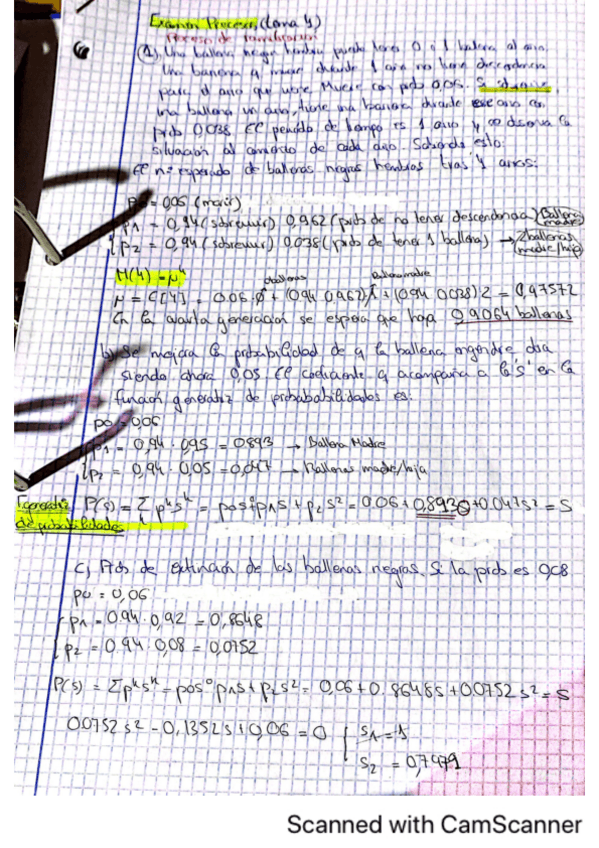 Examen Procesos (tema 4)
Proceso de ramificación
① Una ballena negra hembra puede tener 0 o 1 ballena al año.
Una ballena q muere durante 1 año no tiene descendencia
para el año que muere. Muere con prob 0,06. Si sobrevive
una ballena un año, tiene una ballena durante ese año con
prob 0,038. El periodo de tiempo es 1 año y se observa la
situación al comienzo de cada año. Sabiendo esto:
El nº esperado de ballenas negras hembras tras 4 años:
= 0,06 (morir)
p1 = 0,94 (sobrevivir) 0,962 (prob de no tener descendencia) Ballena madre
p2 = 0,94 (sobrevivir) 0.038 (prob de tener 1 ballena) → 2 ballenas madre/hija
M(4) = μ⁴
0 ballenas Ballena madre
μ = E[Y] = 0.06·0 + (0.94 0.962)1 + (0.94 0.038)2 = 0,97572
En la cuarta generación se espera que haya 0,9064 ballenas
b) Se mejora la probabilidad de q la ballena engendre,
siendo ahora 0,05. El coeficiente q acompaña a la 's' en la
función generatriz de probabilidades es:
p0 = 0,06
p1 = 0,94 · 0,95 = 0,893 → Ballena Madre
p2 = 0,94 · 0,05 = 0,047 → Ballenas madre/hija
F generatriz de probabilidades
P(s) = Σ pᵏsᵏ = p0s⁰ + p1s + p2s² = 0.06 + 0,893s + 0.047s² = s
c) Prob de extinción de las ballenas negras. Si la prob es 0,08
p0 = 0,06
p1 = 0.94 · 0,92 = 0,8648
p2 = 0.94 · 0,08 = 0,0752
P(s) = Σpᵏsᵏ = p0s⁰ p1s + p2s² = 0,06 + 0.8648s + 0.0752s² = s
0.0752s² - 0,1352s + 0,06 = 0 { s1 = 1
s2 = 0,7979
Scanned with CamScanner